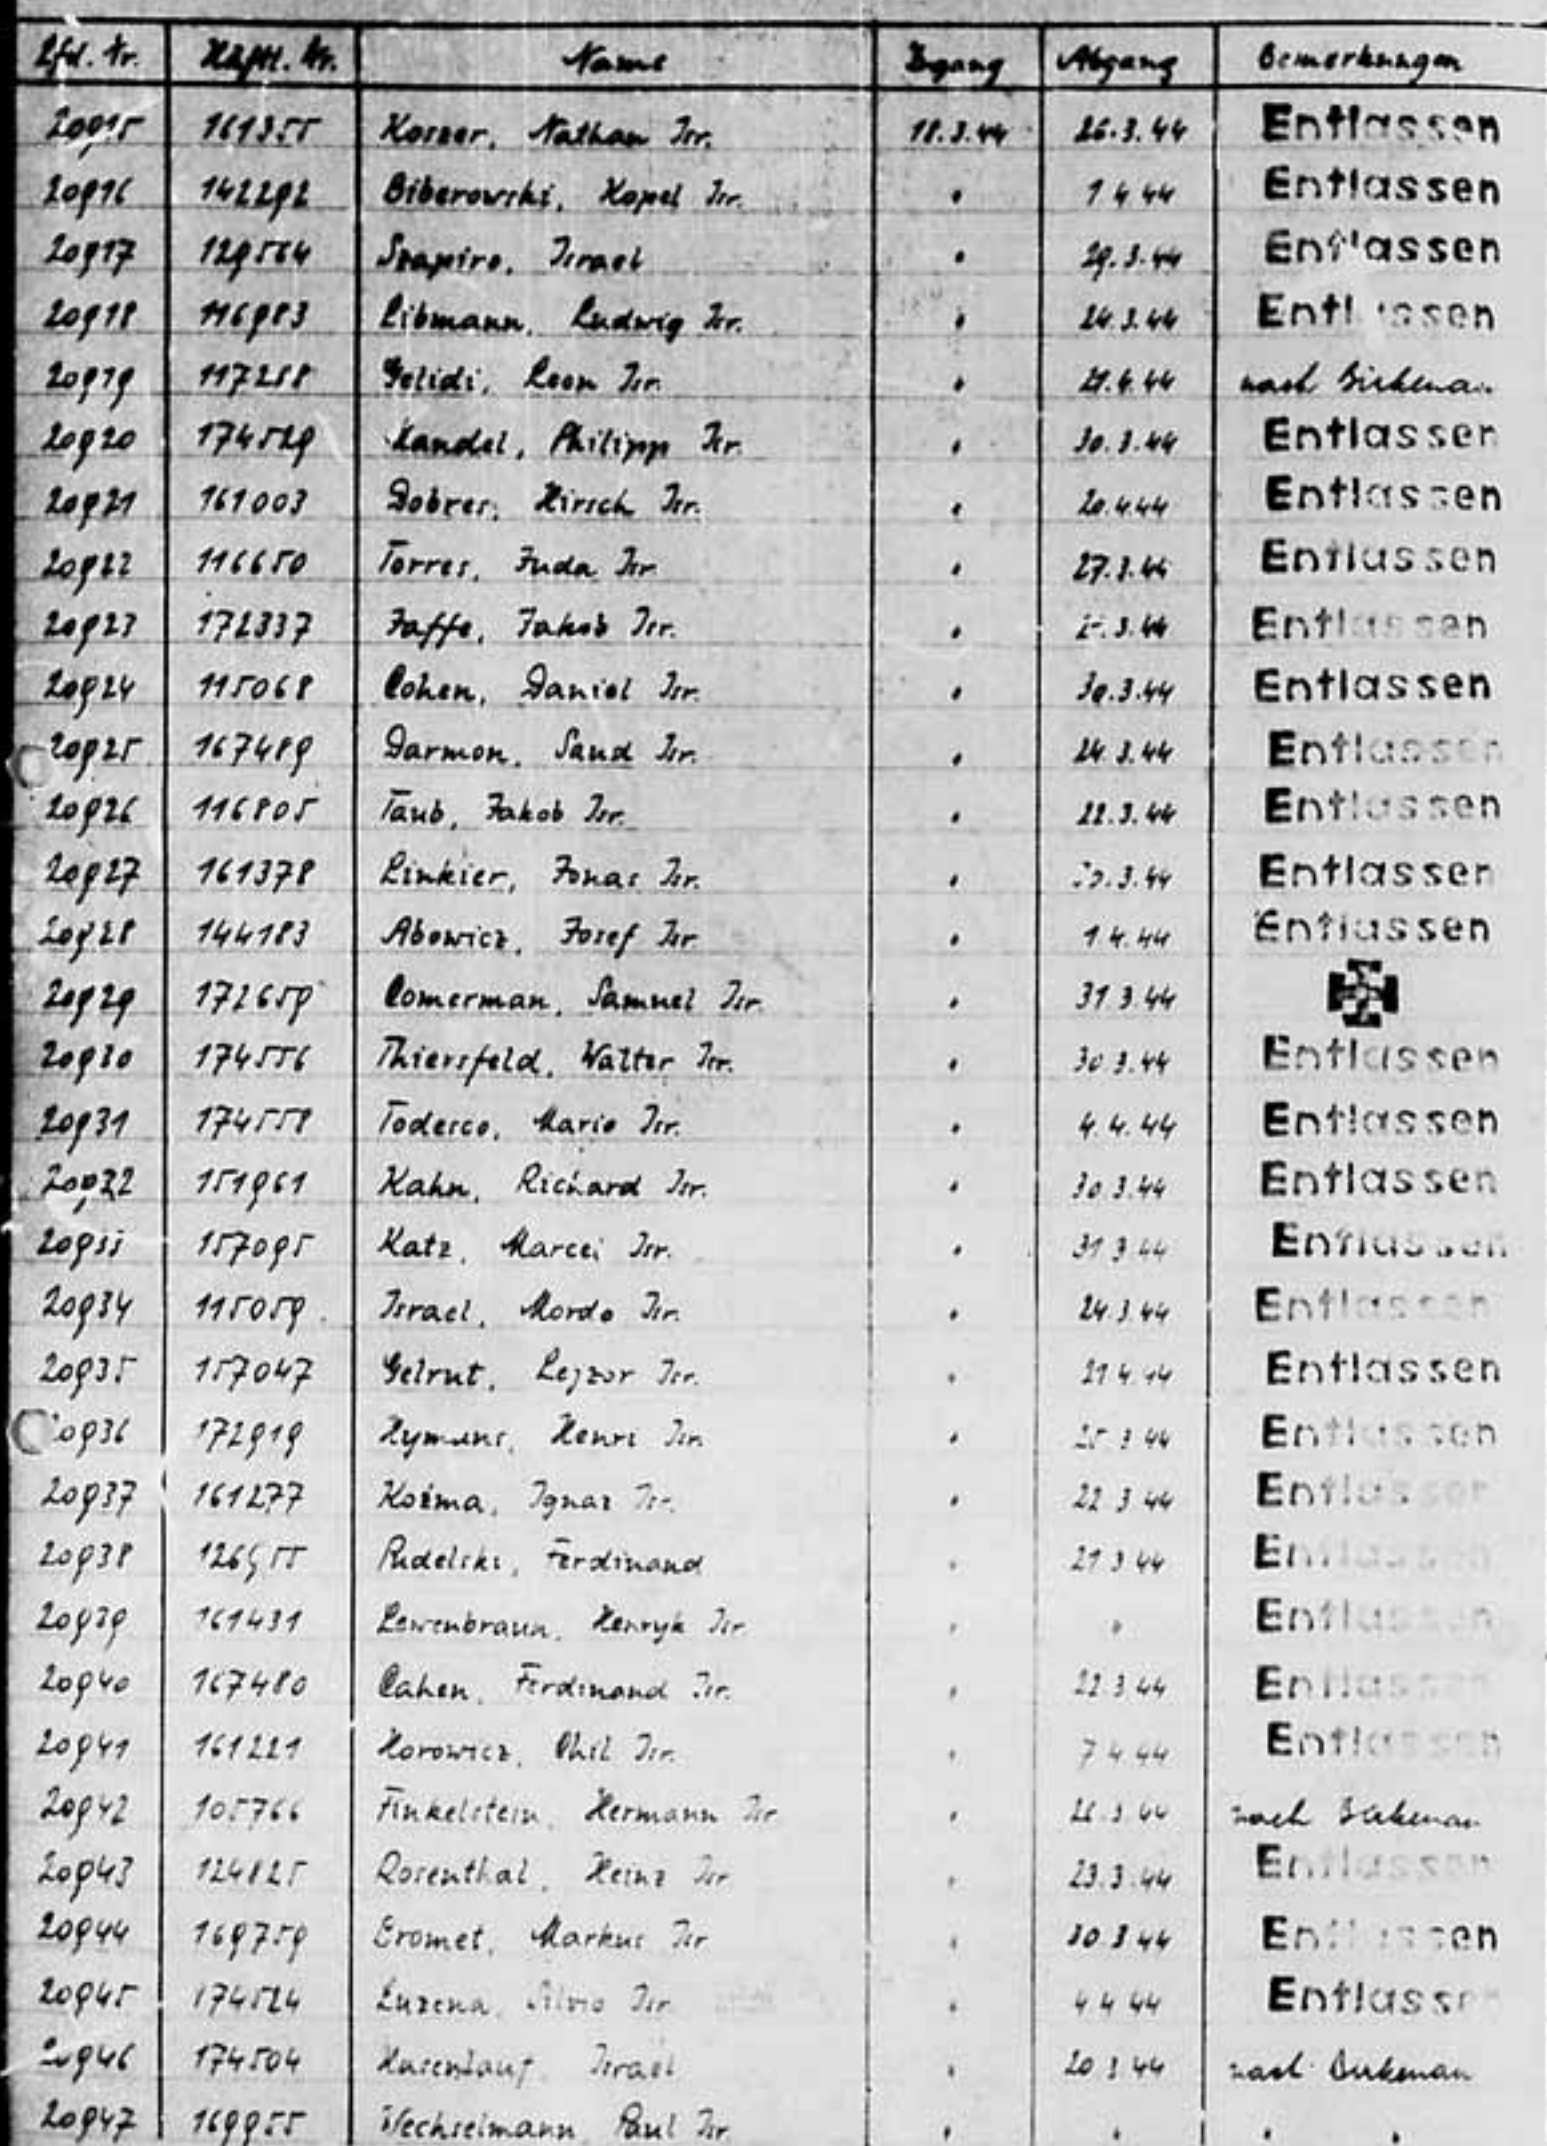 Lfd. Nr. Häftl. Nr. Name Zugang Abgang Bemerkungen
20915 161355 Korzer, Nathan Isr. 18.3.44 26.3.44 Entlassen
20916 142292 Biberowski, Kopel Isr. " 1 4 44 Entlassen
20917 129564 Szapiro, Israel " 29.3.44 Entlassen
20918 116983 Libmann, Ludwig Isr. " 24.3.44 Entlassen
20919 117258 Gelidi, Leon Isr. " 21.4.44 nach Birkenau
20920 174529 Kandel, Philipp Isr. " 30.3.44 Entlassen
20921 161003 Dobres, Hirsch Isr. " 20.4.44 Entlassen
20922 116650 Torres, Juda Isr. " 27.3.44 Entlassen
20923 172337 Jaffe, Jakob Isr. " .3.44 Entlassen
20924 115068 Cohen, Daniel Isr. " 30.3.44 Entlassen
20925 167489 Darmon, Saud Isr. " 24.3.44 Entlassen
20926 116805 Taub, Jakob Isr. " 22.3.44 Entlassen
20927 161378 Linkier, Jonas Isr. " .3.44 Entlassen
20928 144183 Abowicz, Josef Isr. " 1 4.44 Entlassen
20929 172659 Comerman, Samuel Isr. " 31 3.44
20930 174556 Thiersfeld, Walter Isr. " 30.3.44 Entlassen
20931 174558 Todesco, Mario Isr. " 4.4.44 Entlassen
20932 151961 Kahn, Richard Isr. " 30 3.44 Entlassen
20933 157095 Katz, Marcei Isr. " 31 3 44 Entlassen
20934 115059 Israel, Mordo Isr. " 24.3.44 Entlassen
20935 157047 Gelrut, Lejzor Isr. " 21 4.44 Entlassen
20936 172919 Hymans, Henri Isr. " 25 3 44 Entlassen
20937 161277 Kozma, Ignaz Isr. " 22 3 44 Entlassen
20938 126955 Rudelski, Ferdinand " 21 3 44 Entlassen
20939 161431 Lewenbraun, Henryk Isr. " " Entlassen
20940 167480 Cahen, Ferdinand Isr. " 22 3 44 Entlassen
20941 161221 Horowicz, Chil Isr. " 7 4 44 Entlassen
20942 105766 Finkelstein, Hermann Isr. " 26.3 44 nach Birkenau
20943 124825 Rosenthal, Heinz Isr. " 23.3.44 Entlassen
20944 169759 Eromet, Markus Isr. " 30 3 44 Entlassen
20945 174524 Luzena, Silvio Isr. " 4 4 44 Entlassen
20946 174504 Israel " 20 3 44 nach Birkenau
20947 169955 Wechselmann, Paul Isr. " " " "